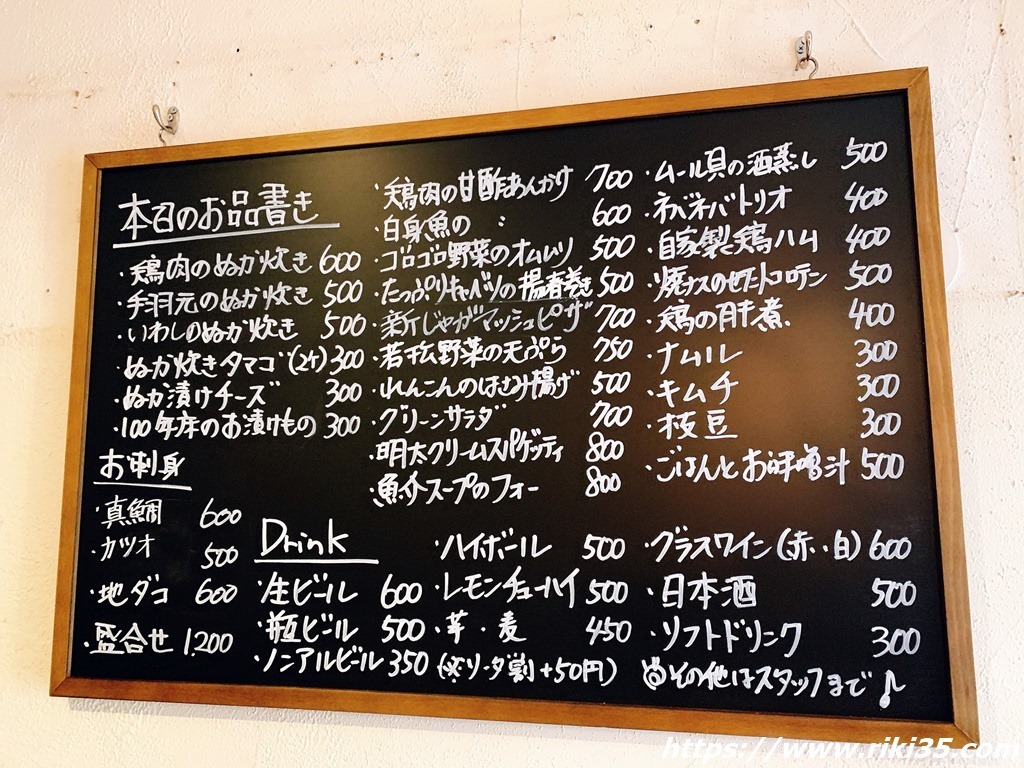 本日のお品書き
・鶏肉のぬか炊き 600
・手羽元のぬか炊き 500
・いわしのぬか炊き 500
・ぬか炊きタマゴ(2ケ) 300
・ぬか漬けチーズ 300
・100年床のお漬けもの 300
お刺身
・真鯛 600
・カツオ 500
・地ダコ 600
・盛合せ 1.200
・鶏肉の甘酢あんかけ 700
・白身魚の 〃 600
・ゴロゴロ野菜のオムレツ 500
・たっぷりキャベツの揚春巻き 500
・新じゃがマッシュピザ 700
・若松野菜の天ぷら 750
・れんこんのはさみ揚げ 500
・グリーンサラダ 700
・明太クリームスパゲッティ 800
・魚介スープのフォー 800
・ムール貝の酒蒸し 500
・ネバネバトリオ 400
・自家製鶏ハム 400
・焼ナスのせトコロテン 500
・鶏の肝煮 400
・ナムル 300
・キムチ 300
・枝豆 300
・ごはんとお味噌汁 500
Drink
・生ビール 600
・瓶ビール 500
・ノンアルビール 350
・ハイボール 500
・レモンチューハイ 500
・芋・麦 450
(※ソーダ割+50円)
・グラスワイン(赤・白) 600
・日本酒 500
・ソフトドリンク 300
◎その他はスタッフまで♪
https://www.riki35.com